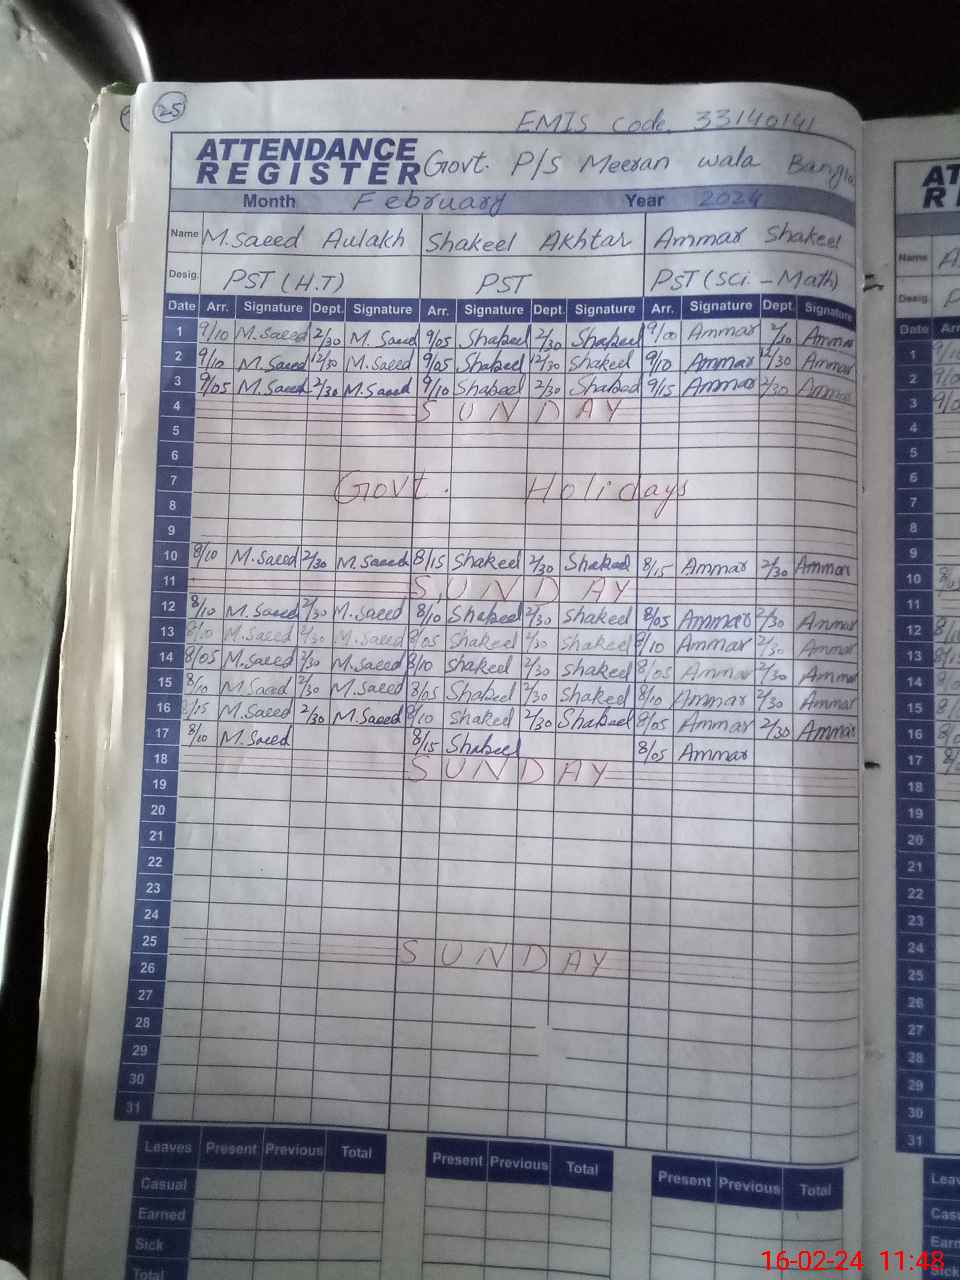 25
EMIS Code. 33140141
ATTENDANCE REGISTER Govt. P/S Meeran wala Bangla
Month February Year 2024
Name M.Saeed Aulakh Shakeel Akhtar Ammar Shakeel
Desig. PST (H.T) PST PST (Sci. - Math)
Date Arr. Signature Dept. Signature Arr. Signature Dept. Signature Arr. Signature Dept. Signature
1 9/10 M.Saeed 2/30 M.Saeed 9/05 Shakeel 2/30 Shakeel 9/00 Ammar 2/30 Ammar
2 9/10 M.Saeed 12/30 M.Saeed 9/05 Shakeel 12/30 Shakeel 9/10 Ammar 12/30 Ammar
3 9/05 M.Saeed 2/30 M.Saeed 9/10 Shakeel 2/30 Shakeel 9/15 Ammar 2/30 Ammar
4 SUNDAY
5
6
7 Govt. Holidays
8
9
10 8/10 M.Saeed 2/30 M.Saeed 8/15 Shakeel 2/30 Shakeel 8/15 Ammar 2/30 Ammar
11 SUNDAY
12 8/10 M.Saeed 2/30 M.Saeed 8/10 Shakeel 2/30 Shakeel 8/05 Ammar 2/30 Ammar
13 8/10 M.Saeed 2/30 M.Saeed 8/05 Shakeel 2/30 Shakeel 8/10 Ammar 2/30 Ammar
14 8/05 M.Saeed 2/30 M.Saeed 8/10 Shakeel 2/30 Shakeel 8/05 Ammar 2/30 Ammar
15 8/10 M.Saeed 2/30 M.Saeed 8/05 Shakeel 2/30 Shakeel 8/10 Ammar 2/30 Ammar
16 8/15 M.Saeed 2/30 M.Saeed 8/10 Shakeel 2/30 Shakeel 8/05 Ammar 2/30 Ammar
17 8/10 M.Saeed 8/15 Shakeel 8/05 Ammar
18 SUNDAY
19
20
21
22
23
24
25 SUNDAY
26
27
28
29
30
31
Leaves Present Previous Total Present Previous Total Present Previous Total
Casual
Earned
Sick
Total
Name
Desig.
Date
1
2
3
4
5
6
7
8
9
10
11
12
13
14
15
16
17
18
19
20
21
22
23
24
25
26
27
28
29
30
31
16-02-24 11:48